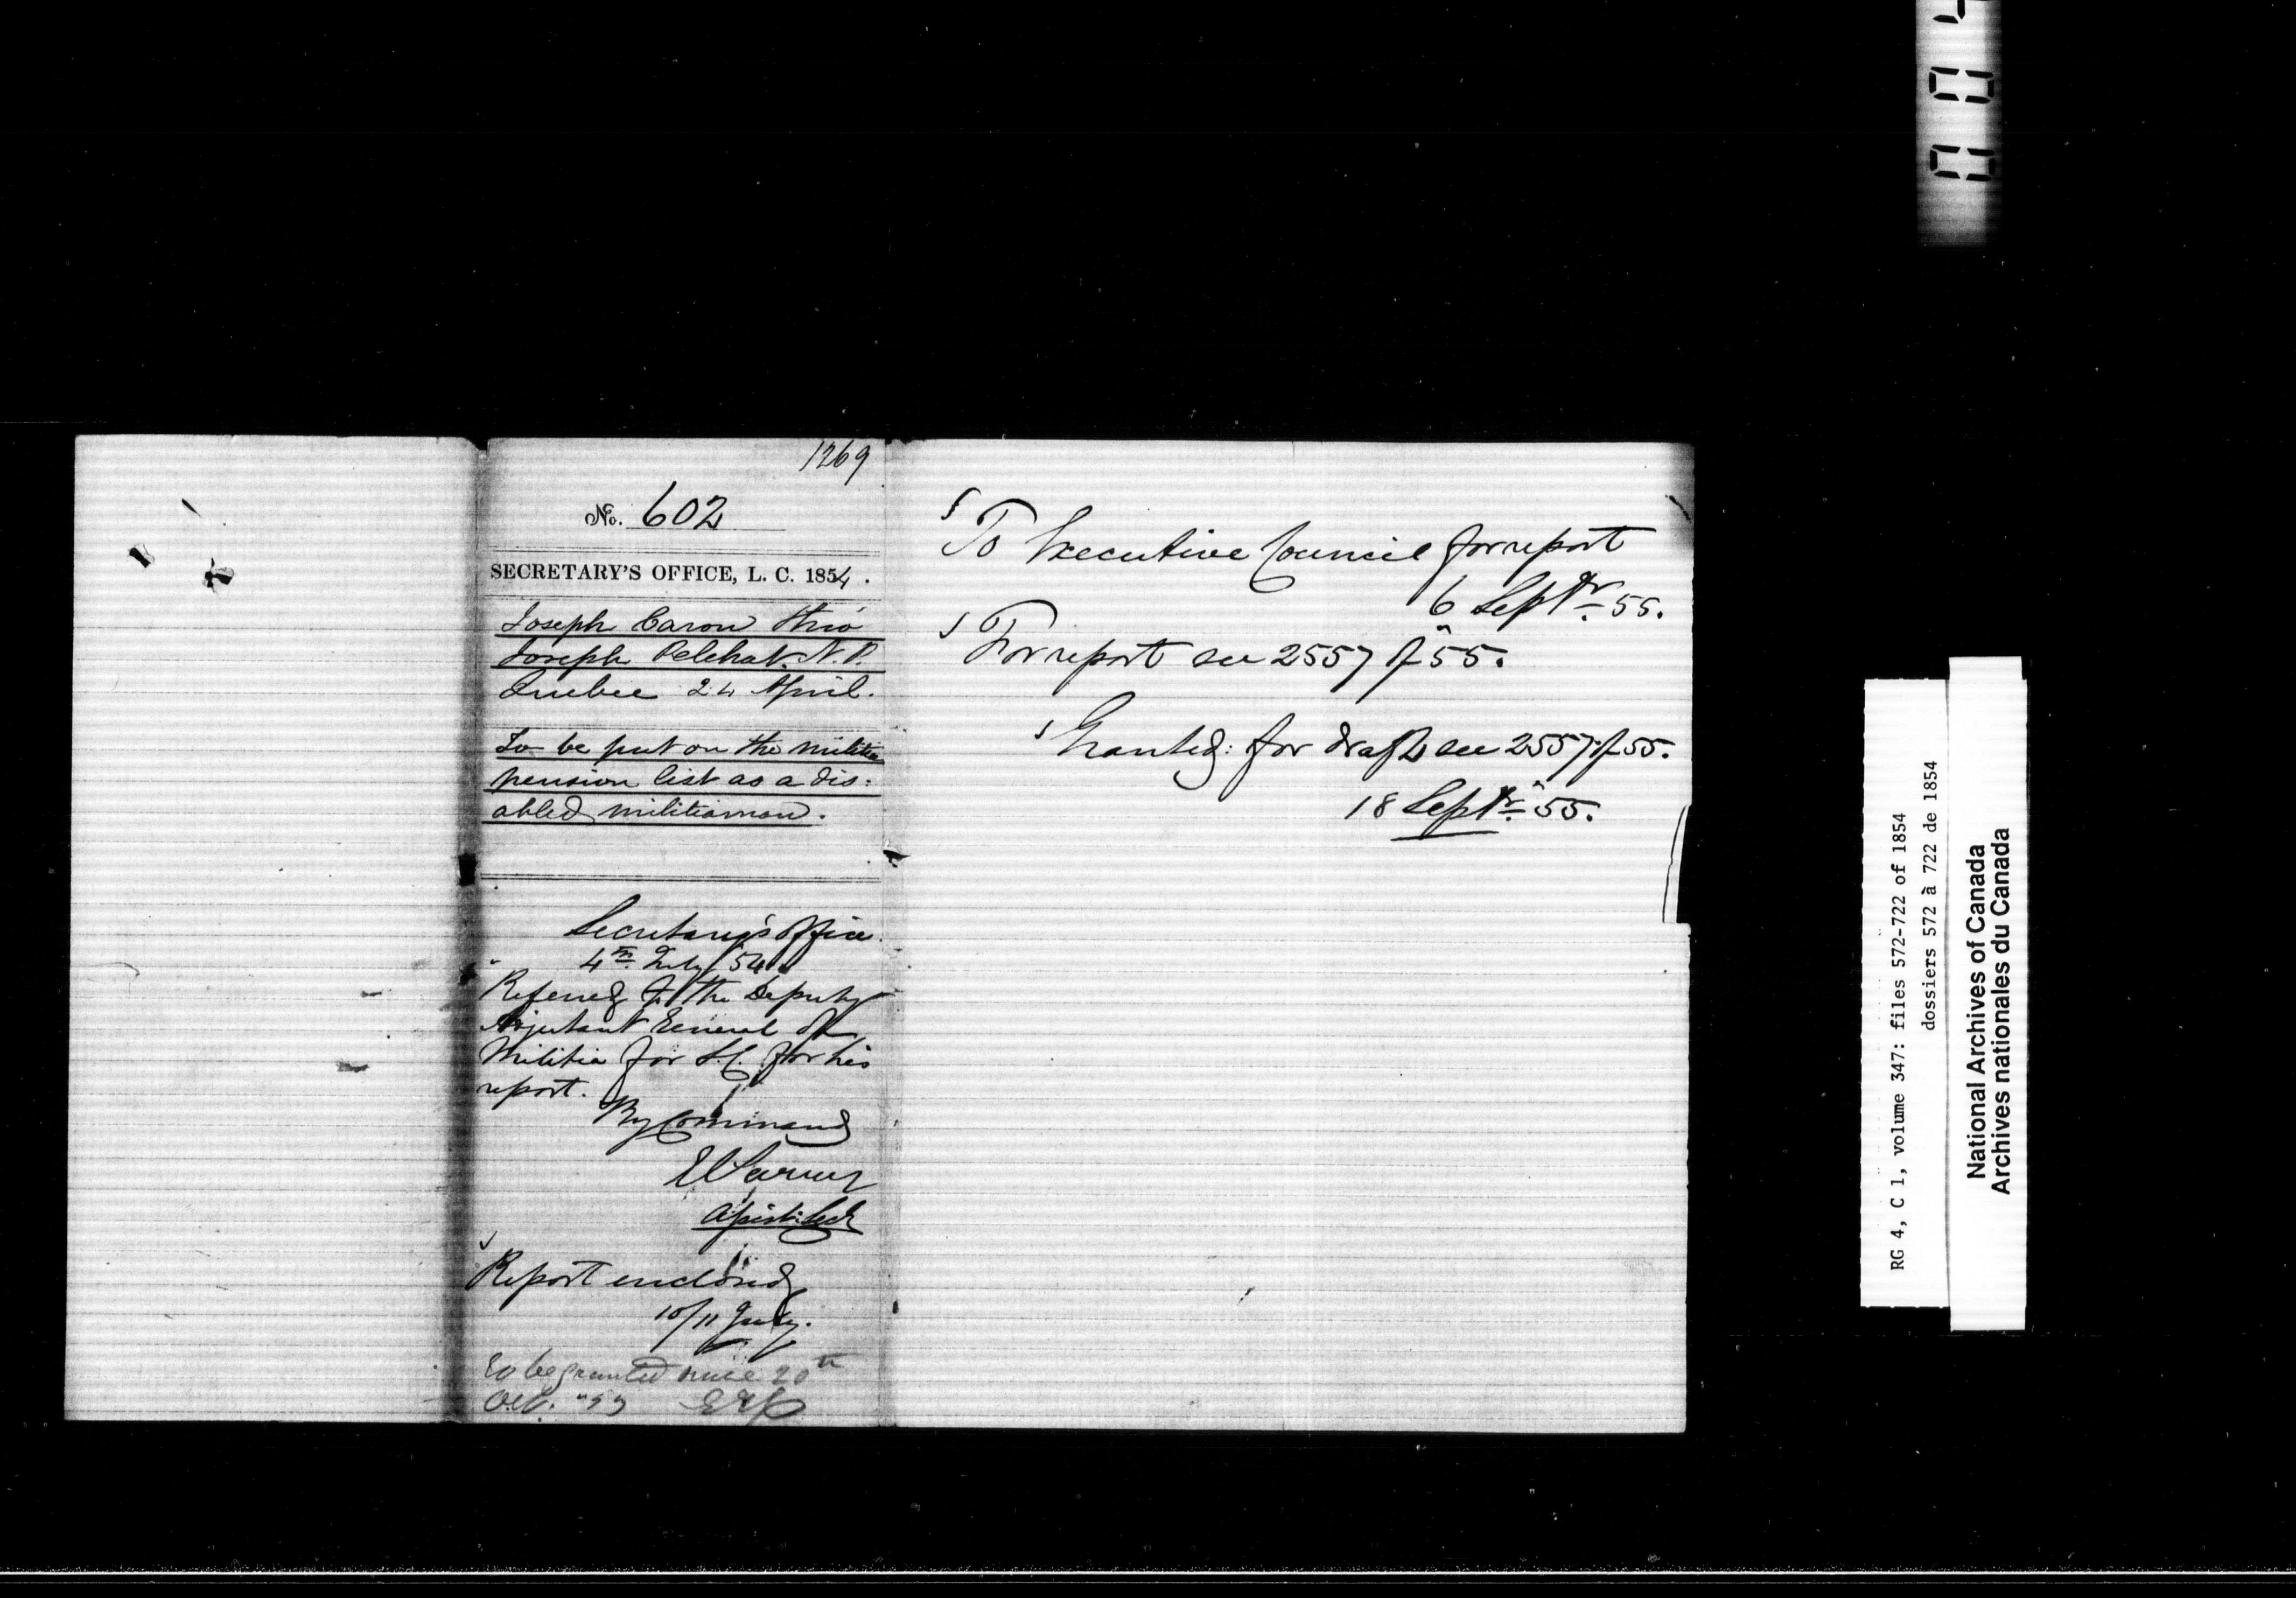 1269
No. 602
SECRETARY'S OFFICE, L. C. 1854.
Joseph Caron thro'
Joseph Pelchat N. P.
Quebec 24 April.
To be put on the militia
pension list as a dis:
abled militiaman.
Secretary's Office
4th July 54.
Referred to the Deputy
Adjutant General of
Militia for L.C. for his
report.
By Command
Assist: Secy
Report enclosed
10/11 July.
To be granted since 20th
Oct. "53
To Executive Council for report
6 Septr 55.
For report see 2557 of 55.
Granted: for draft see 2557 of 55.
18 Septr 55.
RG 4, C 1, volume 347: files 572-722 of 1854
dossiers 572 à 722 de 1854
National Archives of Canada
Archives nationales du Canada